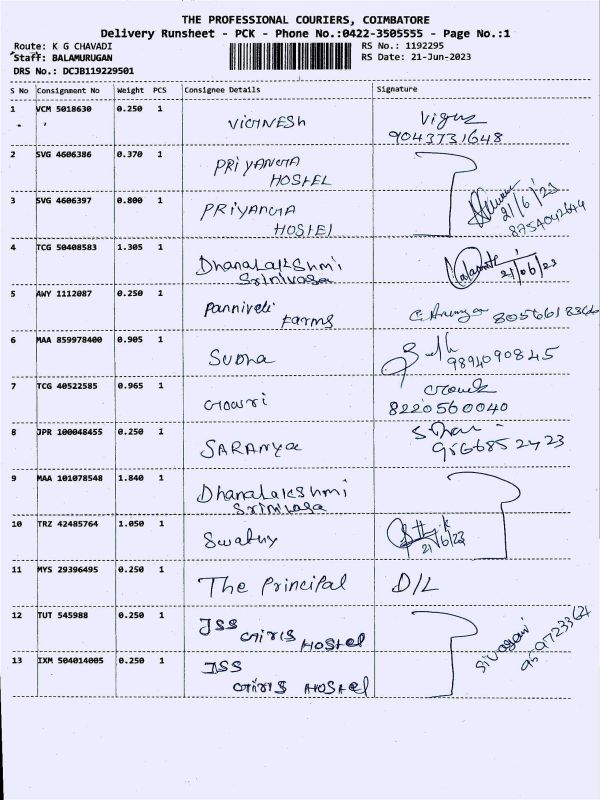 THE PROFESSIONAL COURIERS, COIMBATORE
Delivery Runsheet - PCK - Phone No.:0422-3505555 - Page No.:1
Route: K G CHAVADI RS No.: 1192295
Staff: BALAMURUGAN RS Date: 21-Jun-2023
DRS No.: DCJB119229501
S No Consignment No Weight PCS Consignee Details Signature
1 VCM 5018630 0.250 1 VIGNESH
9043731648
2 SVG 4606386 0.370 1 PRIYANGA
HOSTEL
3 SVG 4606397 0.800 1 PRIYANGA
HOSTEL
21/6/23
8754042644
4 TCG 50408583 1.305 1 DhanaLakshmi
Srinivasa
21/06/23
5 AWY 1112087 0.250 1 Panniveli
Farms
6 MAA 859978400 0.905 1 SUDHA
9894090845
7 TCG 40522585 0.965 1 Gowri
8220560040
8 JPR 100048455 0.250 1 SARANYA
9566852423
9 MAA 101078548 1.840 1 DhanaLakshmi
Srinivasa
10 TRZ 42485764 1.050 1 Swathy
21/6/23
11 MYS 29396495 0.250 1 The Principal D/L
12 TUT 545988 0.250 1 JSS
GIRLS HOSTEL
Sivagami
13 IXM 504014005 0.250 1 JSS
GIRLS HOSTEL